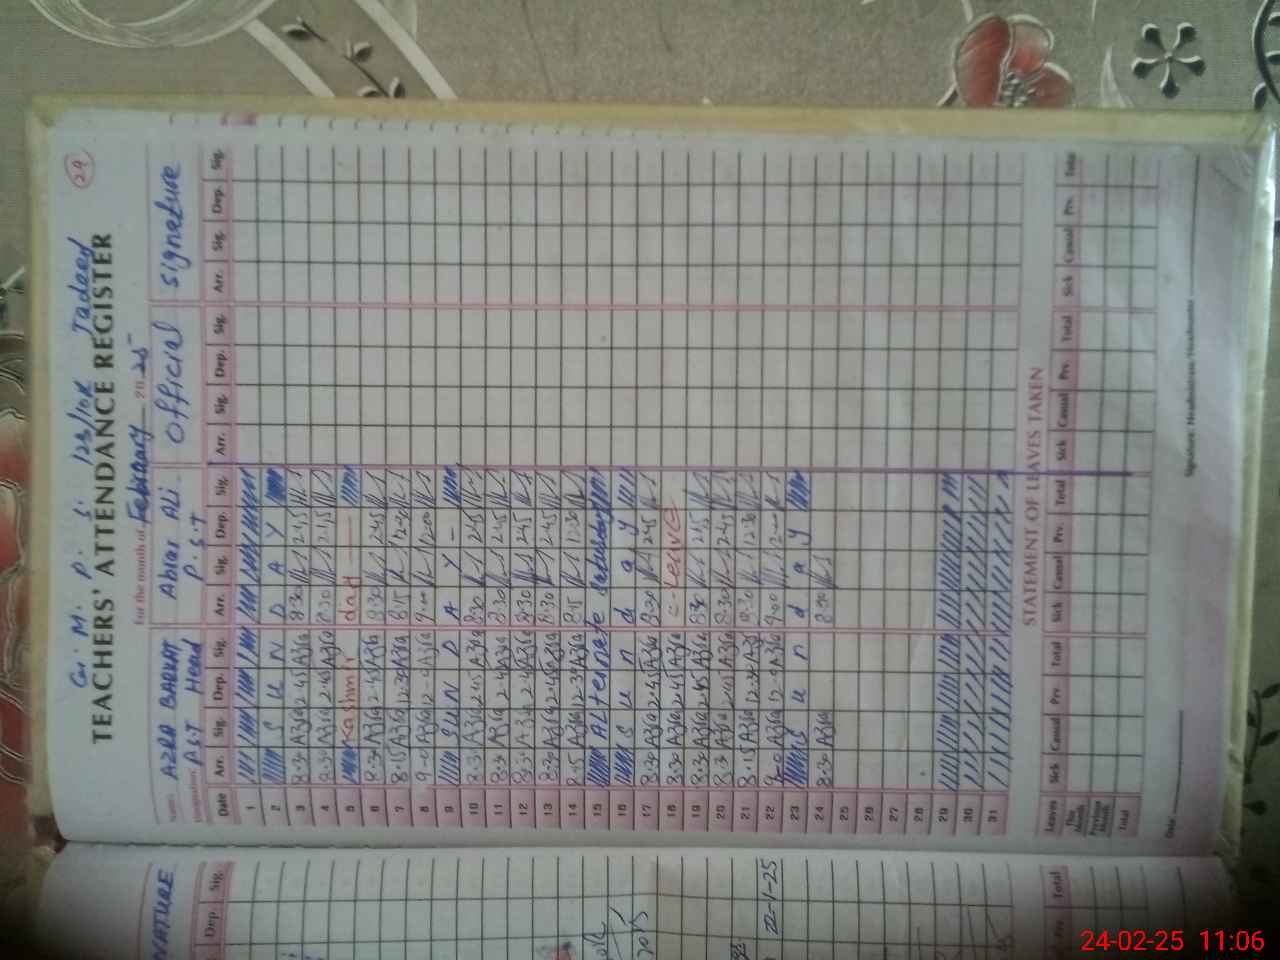 29
Gov. M. P. S. 123/10R Jadeed
TEACHERS' ATTENDANCE REGISTER
For the month of February 2025
Name AZRA BARKAT Abrar Ali Official Signature
P.S.T Head P.S.T
Date Arr. Sig. Dep. Sig. Arr. Sig. Dep. Sig. Arr. Sig. Dep. Sig. Arr. Sig. Dep. Sig.
1
2 S U N D A Y
3 8:30 Azra 2:45 Azra 8:30 2:45
4 8:30 Azra 2:45 Azra 8:30 2:45
5 Kashmir day
6 8:30 Azra 2:45 Azra 8:30 2:45
7 8:15 Azra 12:30 Azra 8:15 12:30
8 9:00 Azra 12:00 Azra 9:00 12:00
9 S U N D A Y
10 8:30 Azra 2:45 Azra 8:30 2:45
11 8:30 Azra 2:45 Azra 8:30 2:45
12 8:30 Azra 2:45 Azra 8:30 2:45
13 8:30 Azra 2:45 Azra 8:30 2:45
14 8:15 Azra 12:30 Azra 8:15 12:30
15 Alternate Saturday
16 S u n d a y
17 8:30 Azra 2:45 Azra 8:30 2:45
18 8:30 Azra 2:45 Azra C-Leave
19 8:30 Azra 2:45 Azra 8:30 2:45
20 8:30 Azra 2:45 Azra 8:30 2:45
21 8:15 Azra 12:30 Azra 8:30 12:30
22 9:00 Azra 12:00 Azra 9:00 12:00
23 S u n d a y
24 8:30 Azra 8:30
25
26
27
28
29
30
31
STATEMENT OF LEAVES TAKEN
Leaves Sick Casual Prv. Total Sick Casual Prv. Total Sick Casual Prv. Total Sick Casual Prv. Total
This Month
Previous Month
Total
Date Signature: Headmistress/Headmaster
NATURE
Dep. Sig.
22-1-25
Prv. Total
24-02-25 11:06